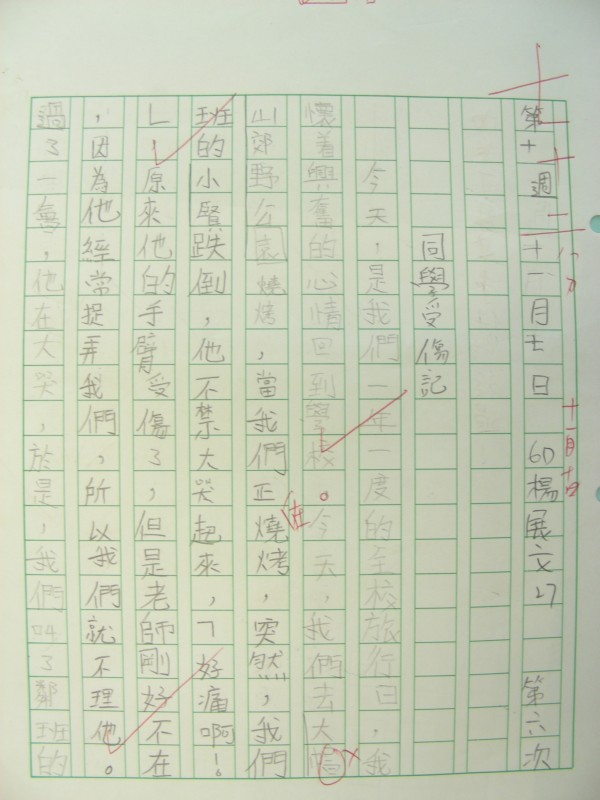 第十週 十一月七日 60楊展文27 第六次
同學受傷記
今天,是我們一年一度的全校旅行日,我
懷着興奮的心情回到學校。今天,我們去大
山郊野公園燒烤,當我們正在燒烤,突然,我們
班的小賢跌倒,他不禁大哭起來,「好痛啊!
」,原來他的手臂受傷了,但是老師剛好不在
,因為他經常捉弄我們,所以我們就不理他。
過了一會,他在大哭,於是,我們叫了鄰班的
十一月十四